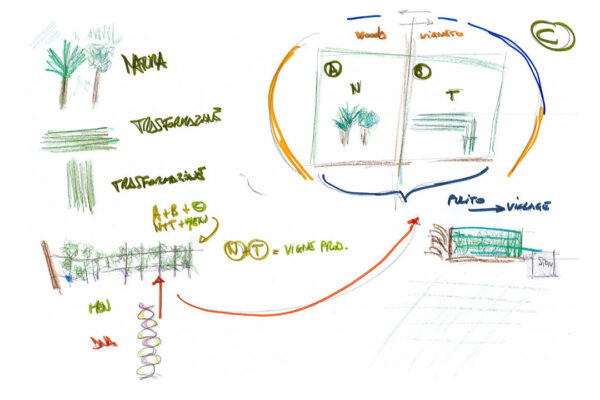 NATURA
TRASFORMAZIONE
TRASFORMAZIONE
A + B + C
N + T + MEN
N + T = VIGNE PROD.
MEN
DNA
VIGNETO
C
A
B
N
T
PULITO → VILLAGE